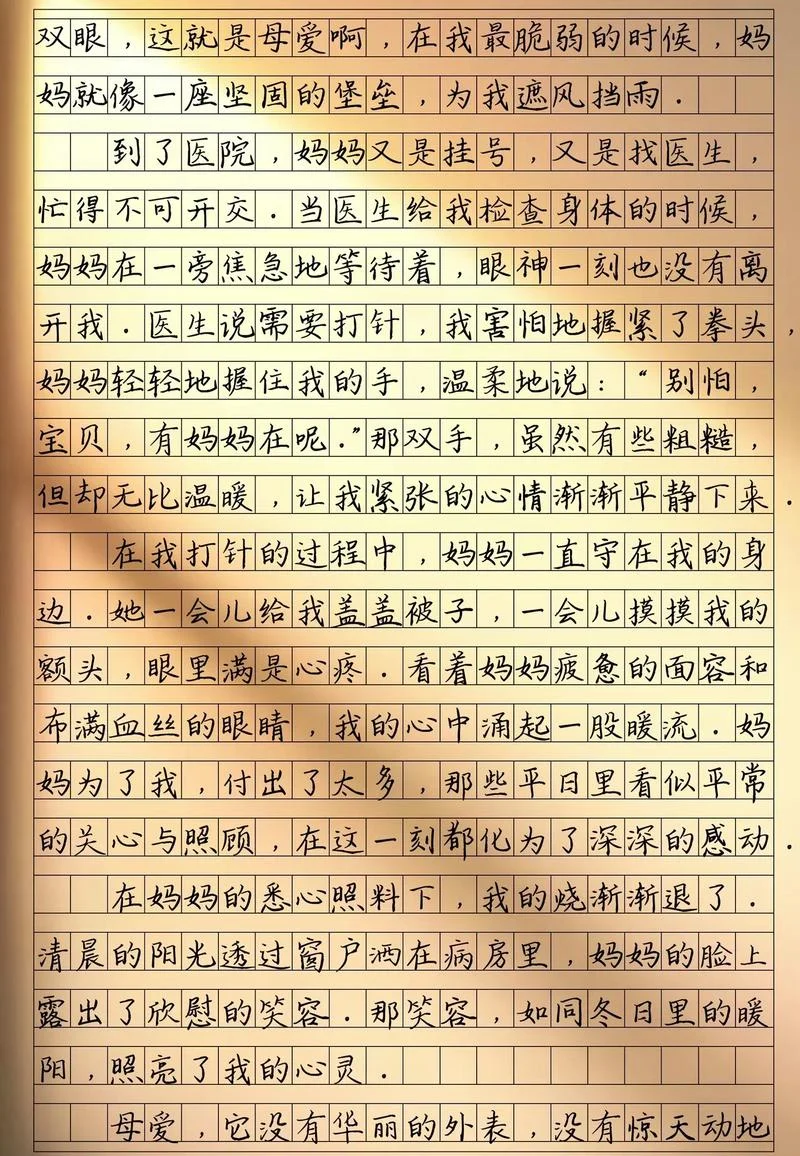 双眼，这就是母爱啊，在我最脆弱的时候，妈
妈就像一座坚固的堡垒，为我遮风挡雨．
到了医院，妈妈又是挂号，又是找医生，
忙得不可开交．当医生给我检查身体的时候，
妈妈在一旁焦急地等待着，眼神一刻也没有离
开我．医生说需要打针，我害怕地握紧了拳头，
妈妈轻轻地握住我的手，温柔地说：“别怕，
宝贝，有妈妈在呢．”那双手，虽然有些粗糙，
但却无比温暖，让我紧张的心情渐渐平静下来．
在我打针的过程中，妈妈一直守在我的身
边．她一会儿给我盖盖被子，一会儿摸摸我的
额头，眼里满是心疼．看着妈妈疲惫的面容和
布满血丝的眼睛，我的心中涌起一股暖流．妈
妈为了我，付出了太多，那些平日里看似平常
的关心与照顾，在这一刻都化为了深深的感动．
在妈妈的悉心照料下，我的烧渐渐退了．
清晨的阳光透过窗户洒在病房里，妈妈的脸上
露出了欣慰的笑容．那笑容，如同冬日里的暖
阳，照亮了我的心灵．
母爱，它没有华丽的外表，没有惊天动地